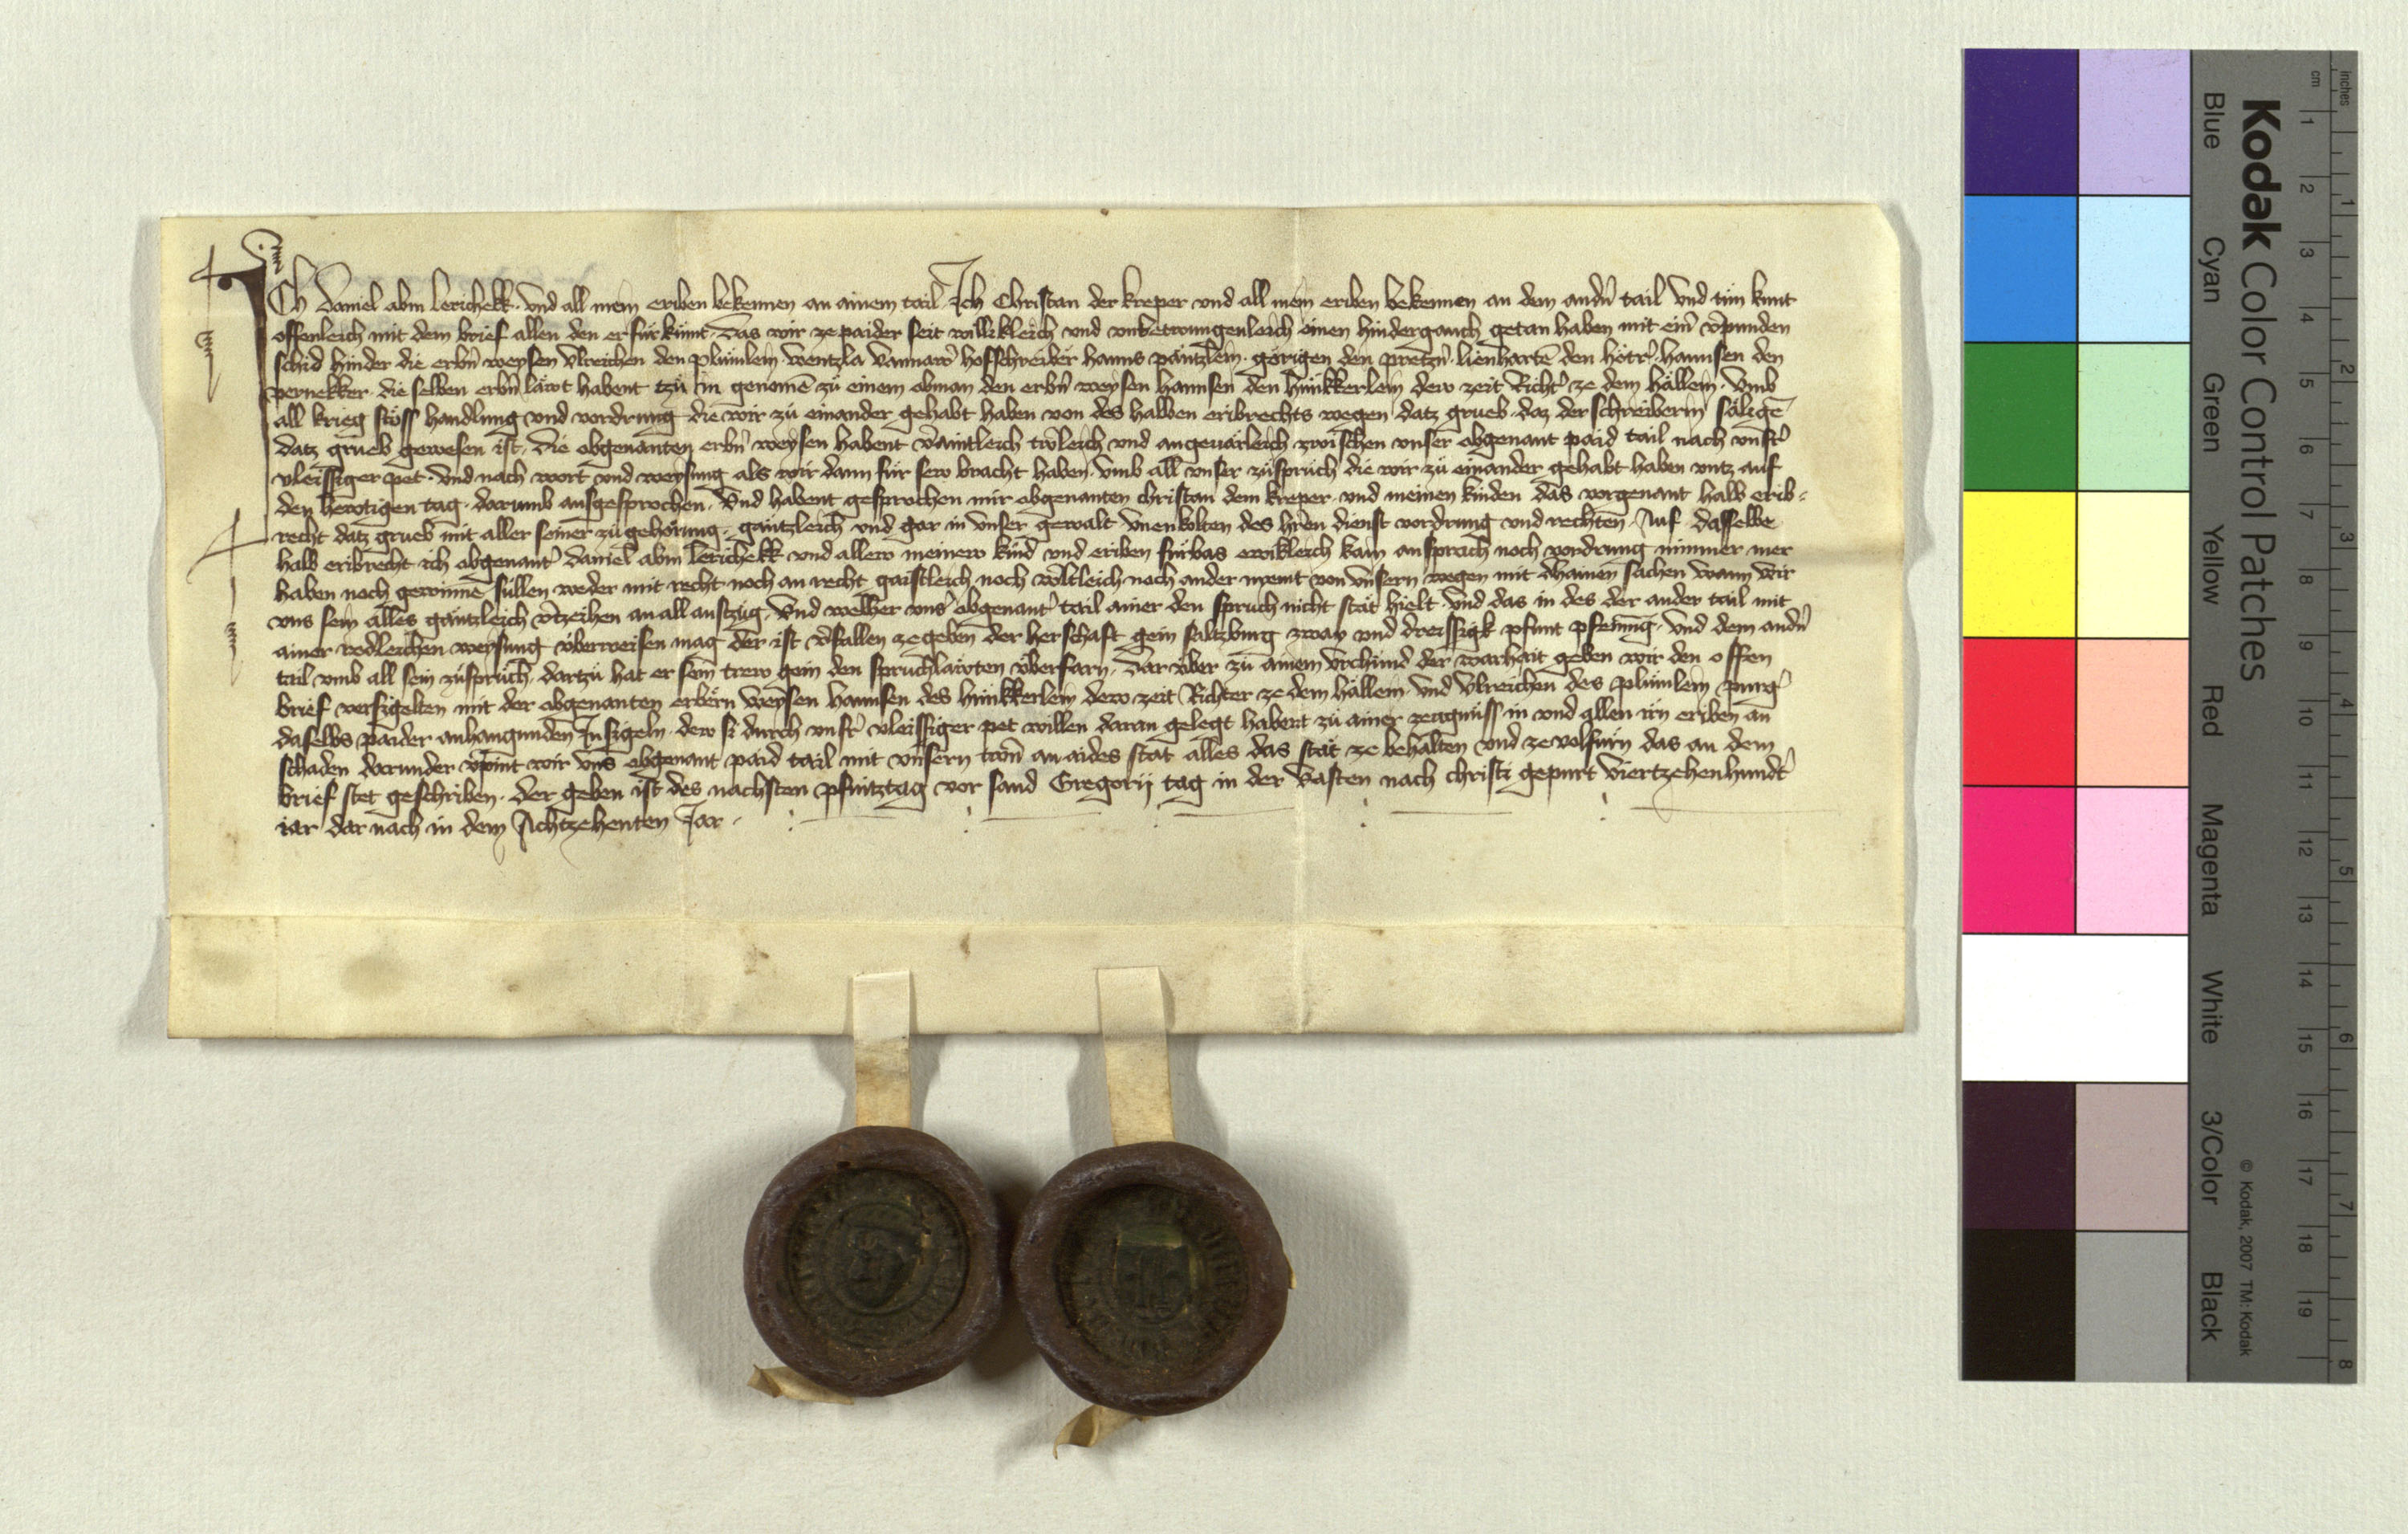 ICh Daniel abm lerichekk vnd all mein eriben bekennen an ainem tail Ich Christan der kreper vnd all mein eriben bekennen an dem andn̄ tail Vnd tün kunt
offenleich mit dem brief allen den er für kümt. Das wir ze paider seit willikleich vnd vnbetwungenleich einen hindergankh getan haben mit ein̄ v̄punden
schid hinder die erbn̄ weysen Vlreichen den plüimlein. wentzla hofschreiber hanns päntzlein. görigen den pretzn̄. lienhartē den hötr̄. hannsen den
pernekker. die selben erbn̄ läwt habent tzü in genomē zü einem obman den erbn̄ weysen hannsen den hünkkerlein dew zeit Richt̄ ze dem hällein. Vmb
all krieg stöss handlung vnd vordrung die wir zü einander gehabt haben von des halben eribrechts wegen datz grueb. daz der schreiberin säligē
datz grueb gewesen ist. die obgenanten erbn̄ weysen habent v̄aintleich tröleich vnd angeuärleich zwischen vnser obgenant paid tail nach vnsr̄
vleissiger pet. Vnd nach wort vnd weysung als wir dann für sew bracht haben. vmb all vnser züsprüch die wir zü einander gehabt haben vntz auf
den hewtigen tag. darumb ausgesprochen. Vnd habent gesprochen mir obgenanten christan dem kreper vnd meinen kinden das vorgenant halb erib=
recht datz grueb mit aller seiner zügehörung. gäntzleich vnd gar in vnser gewalt vnenkolten des hr̄en dienst vordrung vnd rechten. Auf dasselbe
halb eribrecht ich obgenant̄ Daniel abm lerichekk vnd allew meinew kind vnd eriben fürbas ewikleich kain ansprach noch vordrung nimmer mer
haben noch gewinnē süllen weder mit recht noch an recht gaistleich noch weltleich noch ander nyemt von vnsern wegen mit dhainen sachen wann wir
vns sein alles gäntzleich v̄tzeihen an all austzüg. Vnd welher vns̄ obgenant̄ tail ainer den spruch nicht stät hielt. Vnd das in des der ander tail mit
ainer redleichen weysung überweisen mag der ist v̄fallen ze geben der herschaft gein saltzburg zway vnd dreissigk pfunt pfenīng. Vnd dem andn̄
tail vmb all sein züsprüch. dartzü hat er sein trew gein den spruchläwten überfarn. Dar über zü ainem Vrchünd der warhait geben wir den offen
brief versigelten mit der obgenanten erbern weysen hannsen des hünkkerlein dew zeit Richter ze dem hällein. vnd Vlreichen des plüimlein purḡ
daselbs paider anhangunden Insigeln. dew si durch vnsr̄ vleissiger pet willen daran gelegt habent zü ainer zeugnüss in vnd allen irn eriben an
schaden darunder v̄pint wir vns obgenant paid tail mit vnsern trän an aides stat alles das stät ze behalten vnd ze volfürn das an dem
brief stet geschriben. der geben ist des nachsten pfintztag vor sand Gregorij tag in der Vasten nach christi gepurt Viertzehenhundt̄
iar dar nach in dem Achtzehenten Jar.
Kodak Color Control Patches
Blue Cyan Green Yellow Red Magenta White 3/Color Black
© Kodak, 2007 TM: Kodak
inches 1 2 3 4 5 6 7 8
cm 1 2 3 4 5 6 7 8 9 10 11 12 13 14 15 16 17 18 19